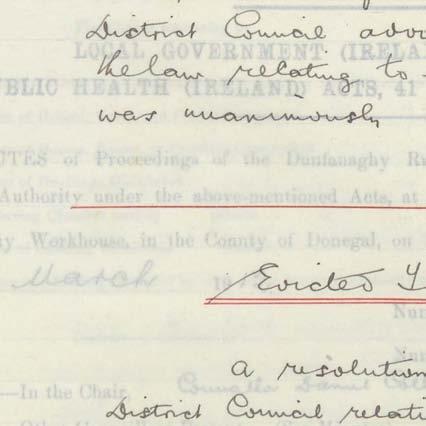 District Council
LOCAL GOVERNMENT (IRELA
the law relating to
PUBLIC HEALTH (IRELAND) ACTS, 41
was unanimously
UTES of Proceedings of the Dunfanaghy Ru
Authority under the above-mentioned Acts, at
ty Workhouse, in the County of Donegal, on
March
Evicted T
Num
Num
a resolution
—In the Chair, Councillor Daniel
District Council relati